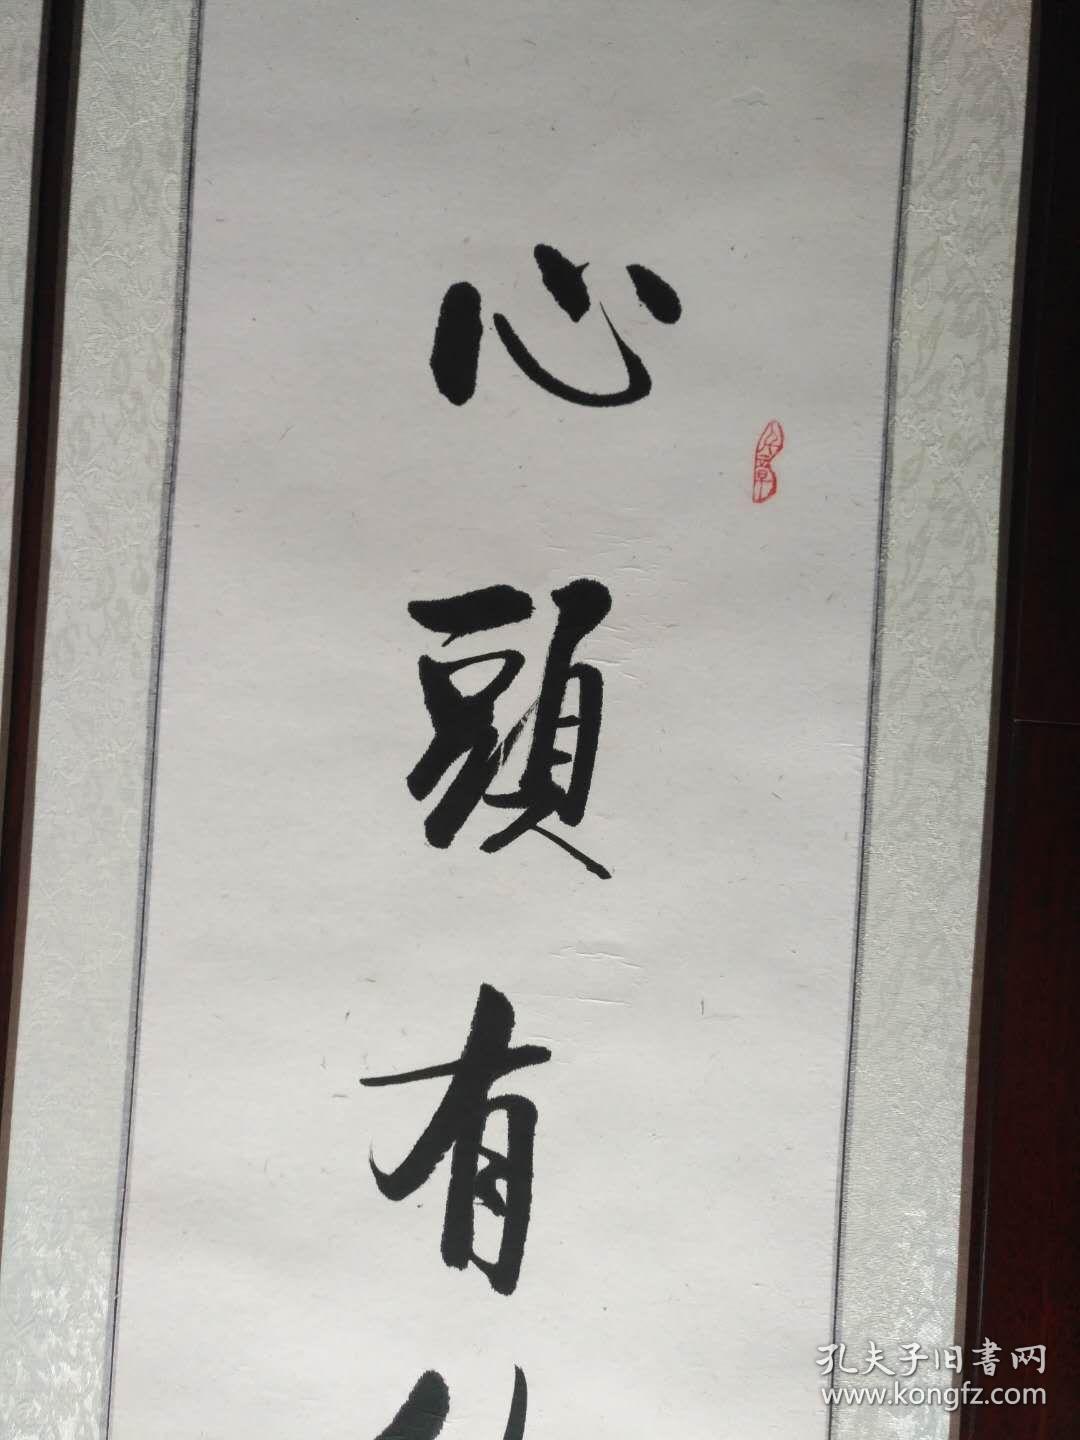 心
頭
有
孔夫子旧書网
www.kongfz.com